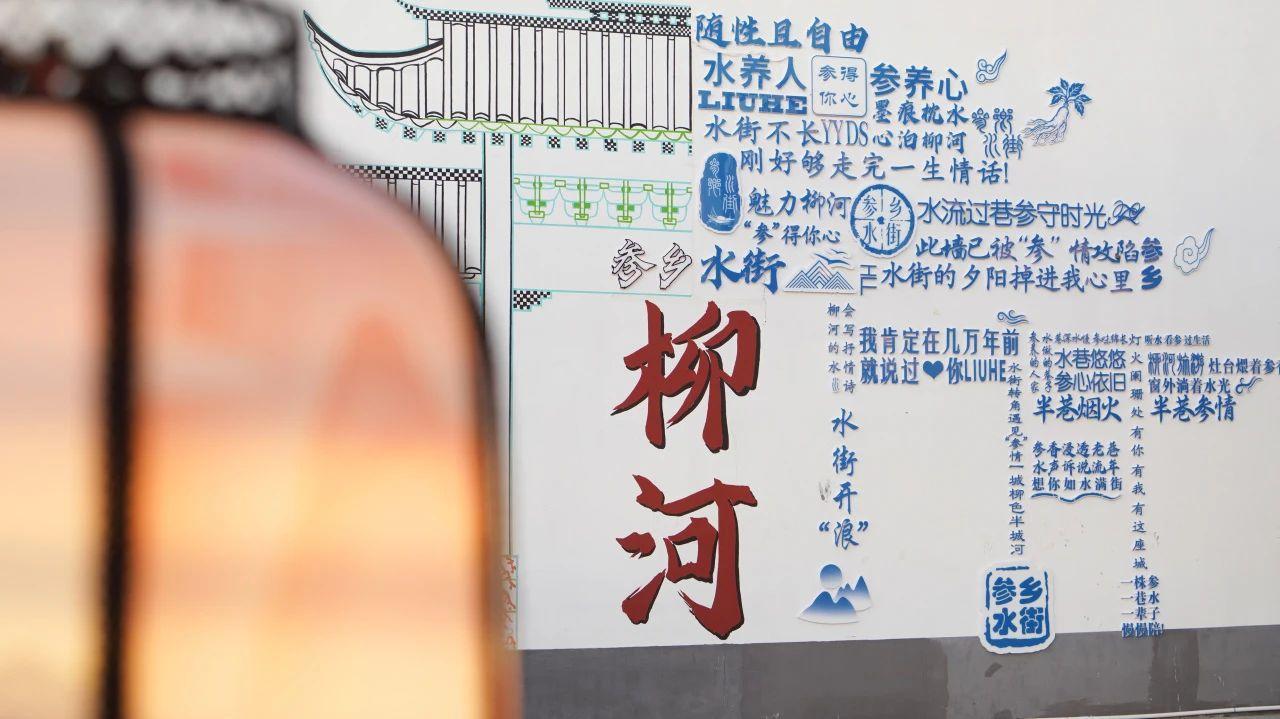 随性且自由
水养人
参得
你心
参养心
LIUHE
墨痕枕水
水街不长YYDS
心泊柳河
刚好够走完一生情话!
魅力柳河
参乡
水街
水流过巷参守时光
“参”得你心
此墙已被“参”情攻陷
参乡
水街
水街的夕阳掉进我心里
参乡
柳河
会写抒情诗
柳河的水
我肯定在几万年前
就说过❤你LIUHE
水街开“浪”
水街转角遇见“参”情一城柳色半城河
水巷悠悠
参心依旧
半巷烟火
听水看参过生活
灶台煨着参
窗外淌着水光
半巷参情
灯火阑珊处有你有我有这座城
参香浸透老巷
水声诉说流年
想你如水满街
一株参
一巷水
一辈子
慢慢陪!
参乡
水街